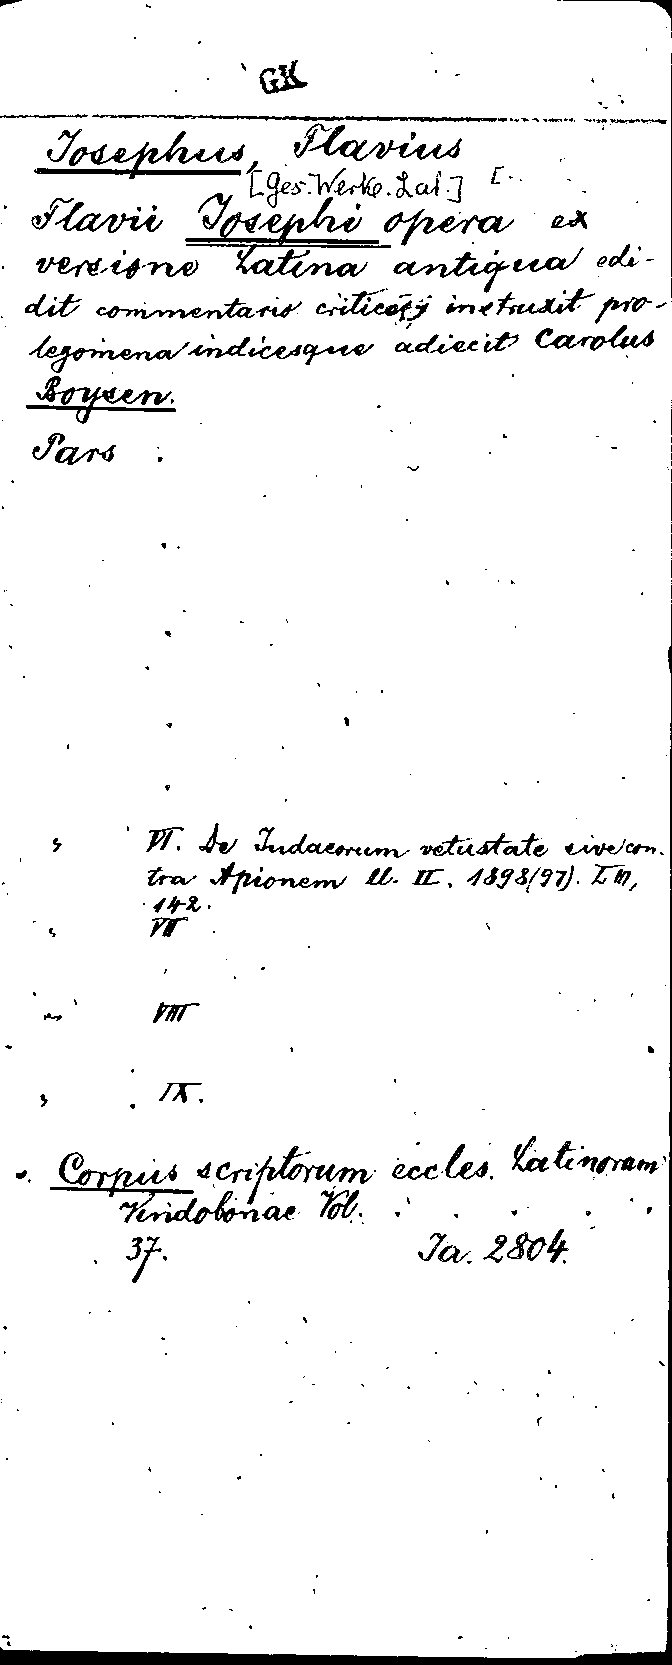 GK
Josephus, Flavius
[Ges. Werke. Lat.] [
Flavii Josephi opera ex
versione Latina antiqua edi-
dit commentario critico instruxit pro-
legomena indicesque adiecit Carolus
Boysen.
Pars .
" VI. De Iudaeorum vetustate sive con-
tra Apionem ll. II. 1898(97). LIII,
142.
" VII
" VIII
" IX.
Corpus scriptorum eccles. Latinorum
Vindobonae Vol. . . . . .
37. Ja. 2804.